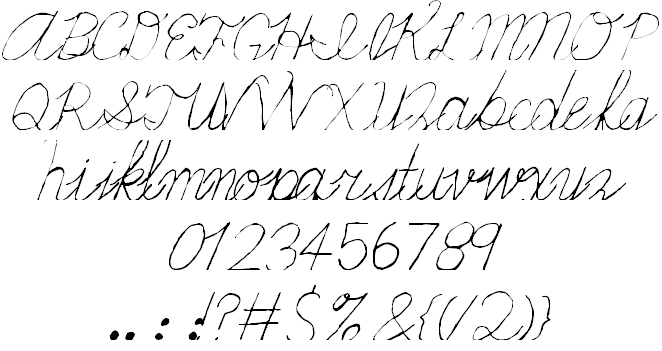 ABCDEFGHIJKLMNOP
QRSTUVWXYZabcdefg
hijklmnopqrstuvwxyz
0123456789
.,:;!?#$%&{(/2)}